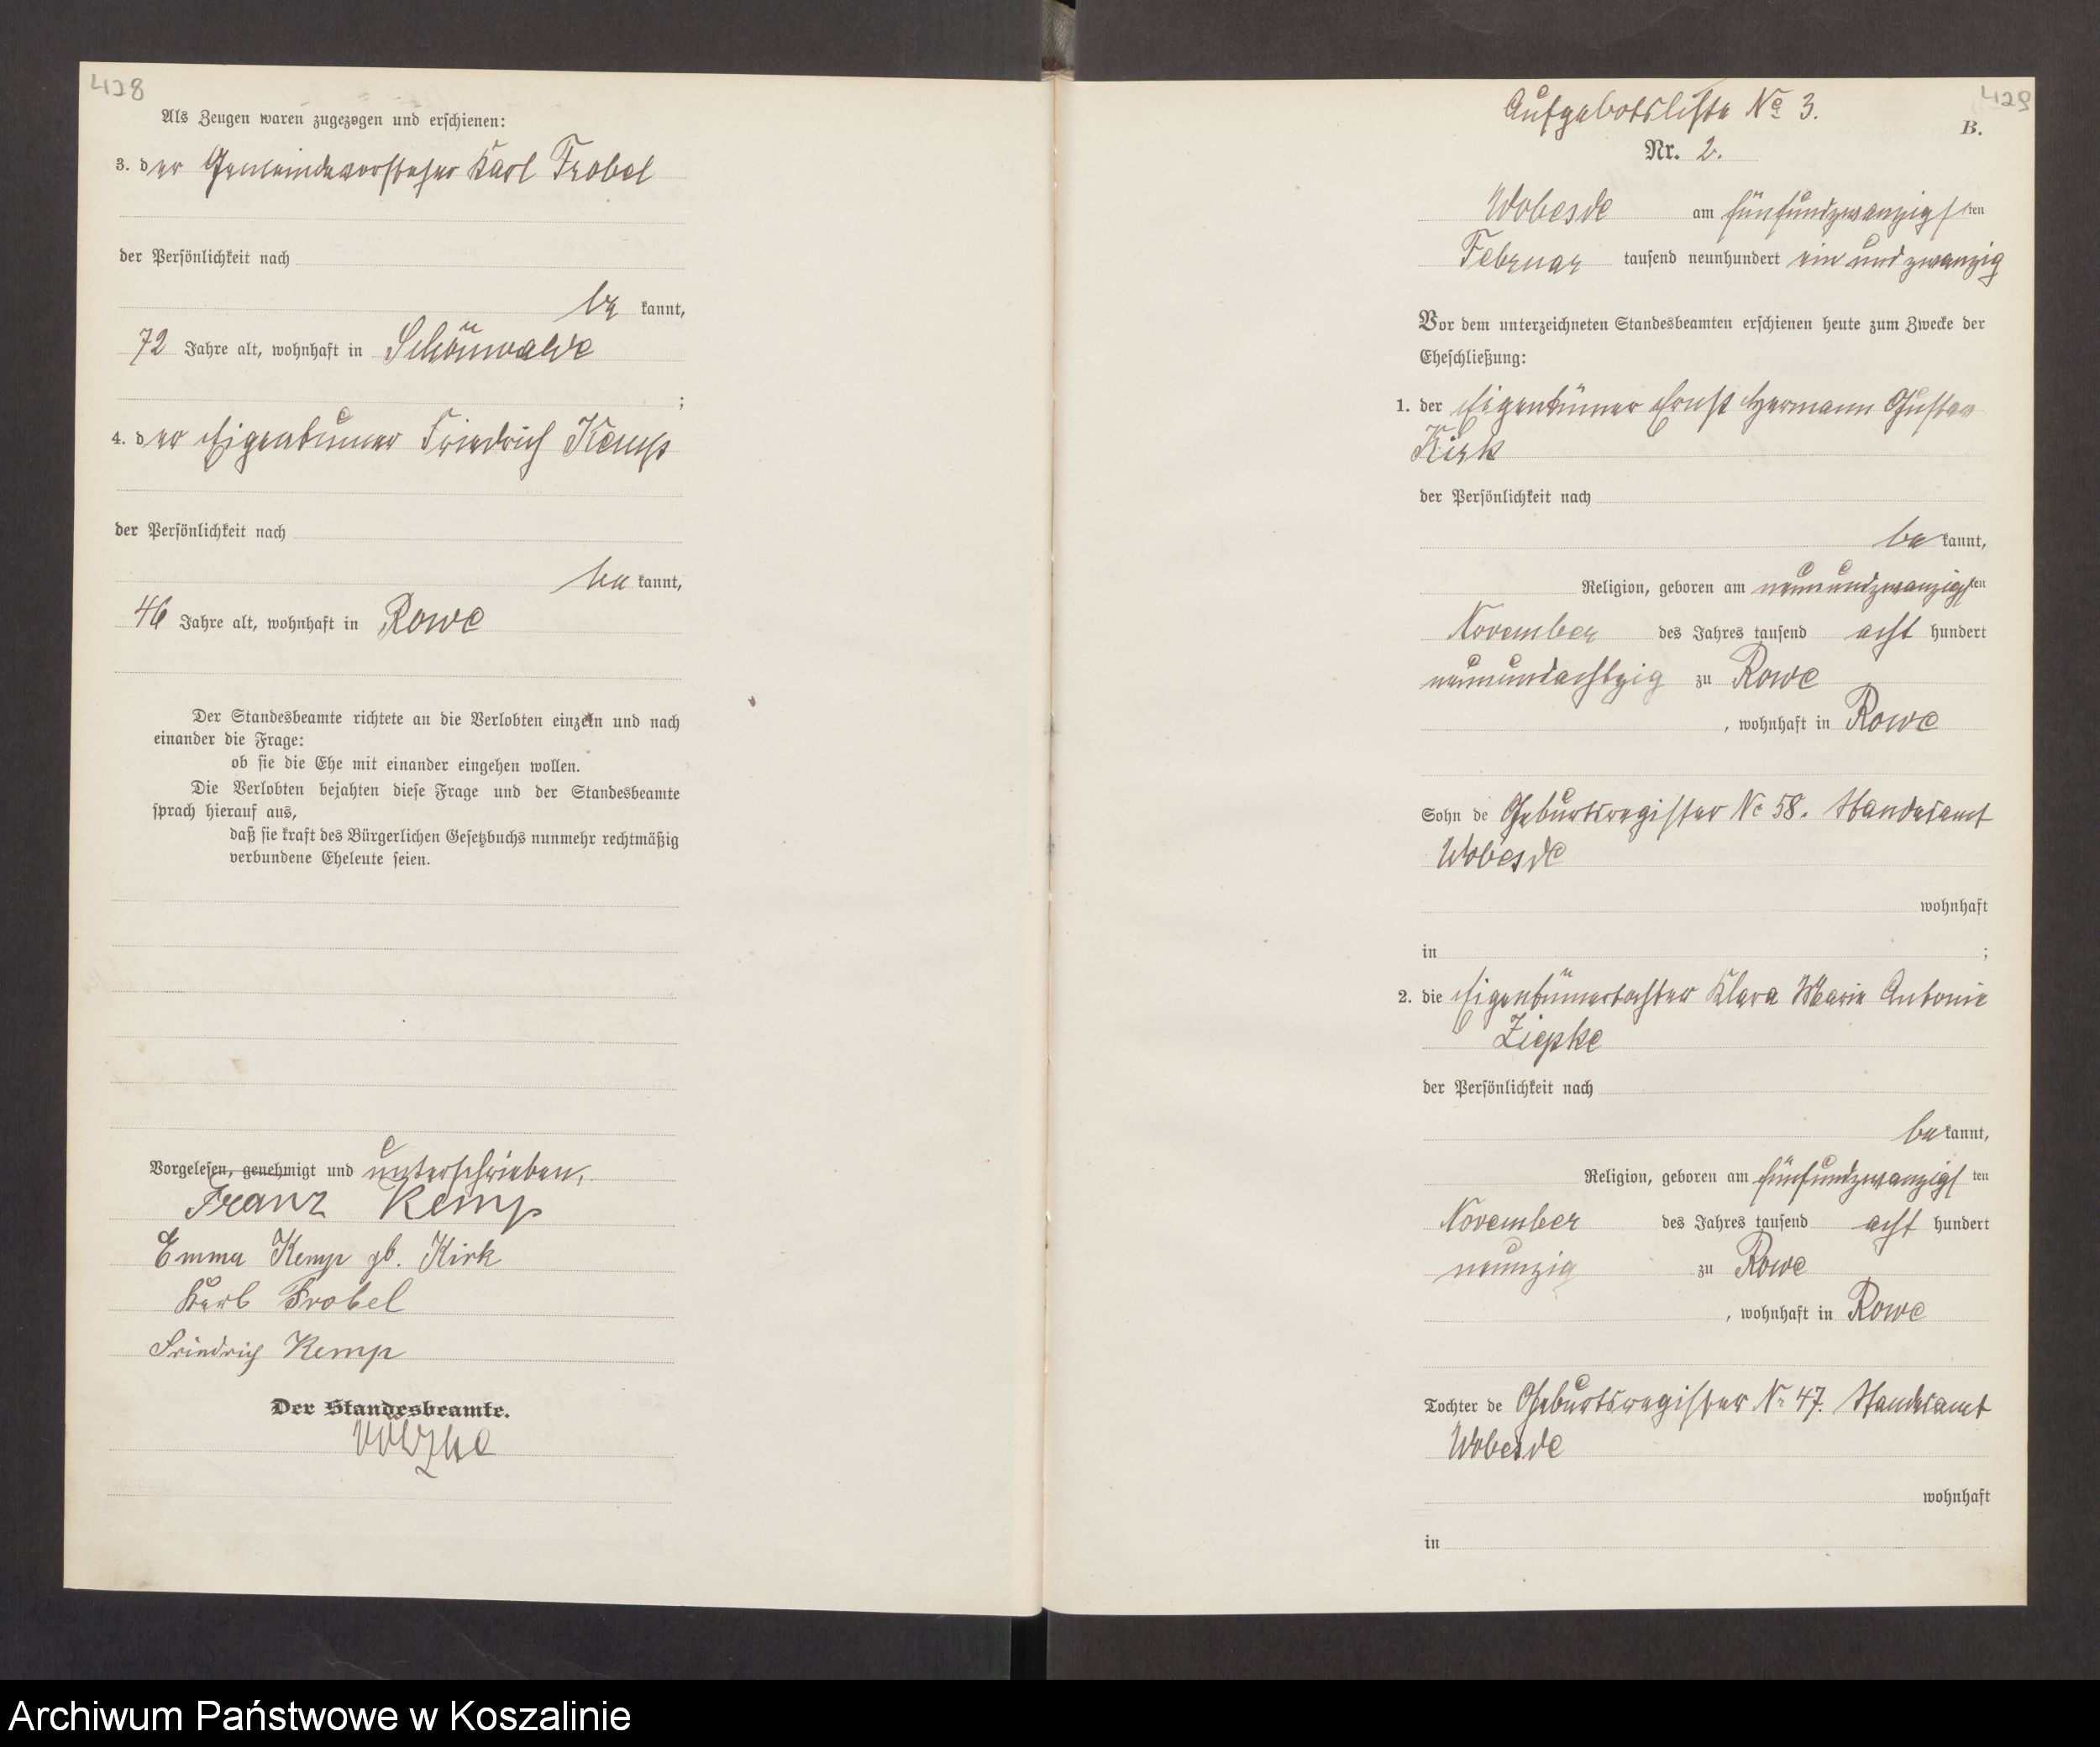 428
Als Zeugen waren zugezogen und erschienen:
3. der Gemeindevorsteher Karl Frobel
der Persönlichkeit nach
be kannt,
72 Jahre alt, wohnhaft in Schönwalde
;
4. der Eigentümer Friedrich Kemp
der Persönlichkeit nach
be kannt,
46 Jahre alt, wohnhaft in Rowe
Der Standesbeamte richtete an die Verlobten einzeln und nach
einander die Frage:
ob sie die Ehe mit einander eingehen wollen.
Die Verlobten bejahten diese Frage und der Standesbeamte
sprach hierauf aus,
daß sie kraft des Bürgerlichen Gesetzbuchs nunmehr rechtmäßig
verbundene Eheleute seien.
Vorgelesen, genehmigt und unterschrieben.
Franz Kemp
Emma Kemp gb. Kirk
Karl Frobel
Friedrich Kemp
Der Standesbeamte.
429
Aufgebotsliste No 3.
B.
Nr. 2.
Wobesde am fünfundzwanzigsten
Februar tausend neunhundert ein und zwanzig
Vor dem unterzeichneten Standesbeamten erschienen heute zum Zwecke der
Eheschließung:
1. der Eigentümer Ernst Hermann Gustav
Kirk
der Persönlichkeit nach
be kannt,
Religion, geboren am neunundzwanzigsten
November des Jahres tausend acht hundert
neunundachtzig zu Rowe
, wohnhaft in Rowe
Sohn de Geburtsregister No 58. Standesamt
Wobesde
wohnhaft
in ;
2. die Eigentümertochter Klara Marie Antonie
Ziepke
der Persönlichkeit nach
be kannt,
Religion, geboren am fünfundzwanzigsten
November des Jahres tausend acht hundert
neunzig zu Rowe
, wohnhaft in Rowe
Tochter de Geburtsregister Nr 47. Standesamt
Wobesde
wohnhaft
in
Archiwum Państwowe w Koszalinie